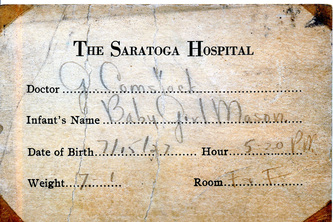 THE SARATOGA HOSPITAL
Doctor G Comstock
Infant's Name Baby Girl Mason
Date of Birth 7/15/ Hour 5-20 P.M.
Weight 7- Room